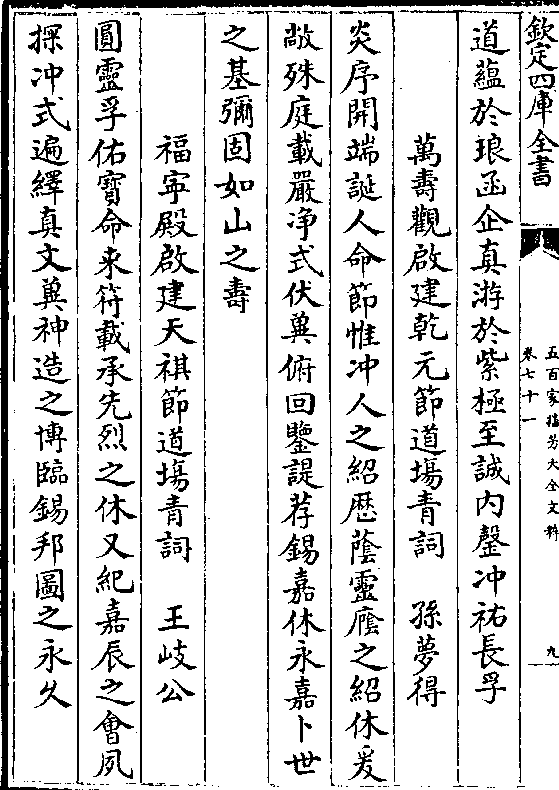 欽定四庫全書
五百家播芳大全文粹
卷七十一
九
道蘊於琅函企真游於紫極至誠内罄冲祐長孚
萬壽觀啟建乾元節道塲青詞　孫夢得
炎序開端誕人命節惟冲人之紹歴蔭靈廕之紹休爰
敞殊庭載嚴净式伏冀俯回鑒諟荐錫嘉休永嘉卜世
之基彌固如山之壽
福寜殿啟建天祺節道塲青詞　王岐公
圓靈孚佑寳命来符載承先烈之休又紀嘉辰之會夙
探冲式遍繹真文冀神造之博臨錫邦圖之永久